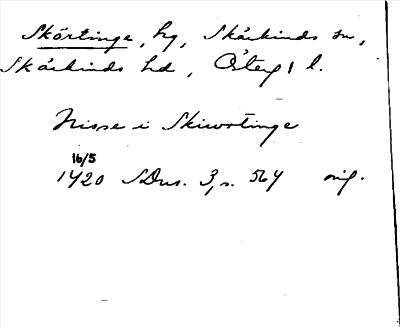 Skörtinge, hg, Skärkinds sn,
Skärkinds hd, Österg. l.
Nisse i Skiwrtinge
16/5
1420 SDns. 3, s. 564 orig.